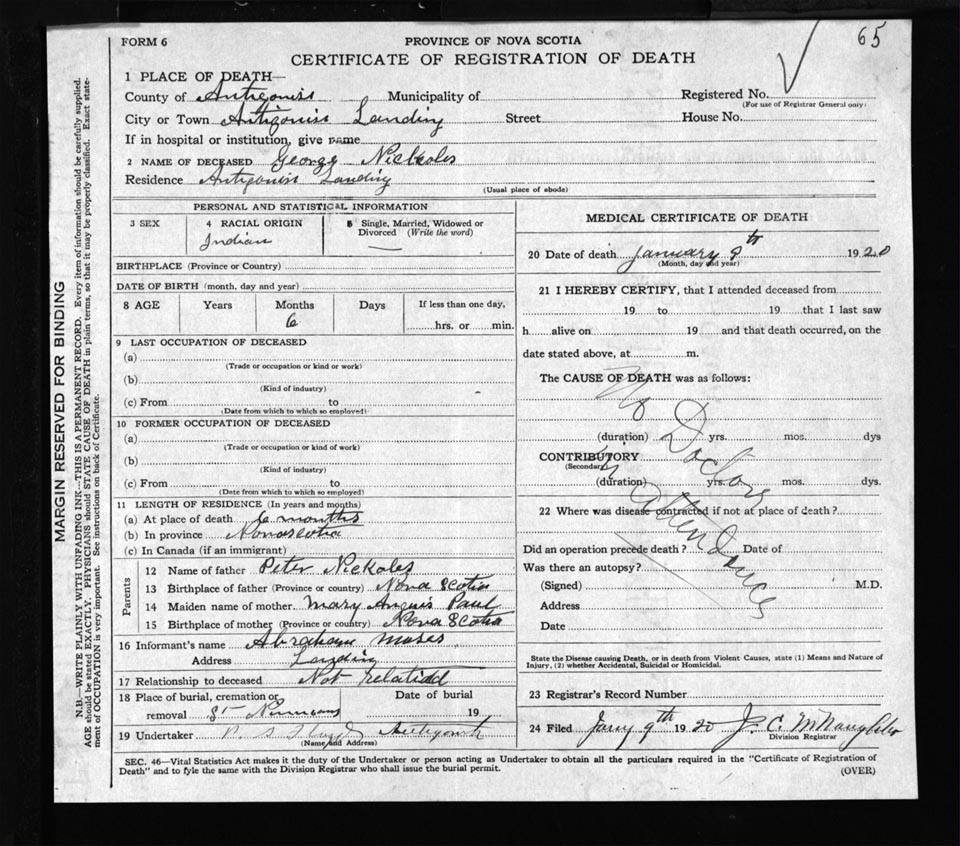 65
FORM 6
PROVINCE OF NOVA SCOTIA
CERTIFICATE OF REGISTRATION OF DEATH
1 PLACE OF DEATH—
County of Antigonish Municipality of Registered No.
(For use of Registrar General only)
City or Town Antigonish Landing Street House No.
If in hospital or institution, give name
2 NAME OF DECEASED George Nickoles
Residence Antigonish Landing
(Usual place of abode)
MARGIN RESERVED FOR BINDING
N.B.—WRITE PLAINLY WITH UNFADING INK—THIS IS A PERMANENT RECORD. Every item of information should be carefully supplied.
AGE should be stated EXACTLY. PHYSICIANS should STATE CAUSE OF DEATH in plain terms, so that it may be properly classified. Exact state-
ment of OCCUPATION is very important. See instructions on back of Certificate.
PERSONAL AND STATISTICAL INFORMATION
3 SEX 4 RACIAL ORIGIN 5 Single, Married, Widowed or
Divorced (Write the word)
Indian
BIRTHPLACE (Province or Country)
DATE OF BIRTH (month, day and year)
8 AGE Years Months Days If less than one day,
6 hrs. or min.
9 LAST OCCUPATION OF DECEASED
(a)
(Trade or occupation or kind or work)
(b)
(Kind of industry)
(c) From to
(Date from which to which so employed)
10 FORMER OCCUPATION OF DECEASED
(a)
(Trade or occupation or kind of work)
(b)
(Kind of industry)
(c) From to
(Date from which to which so employed)
11 LENGTH OF RESIDENCE (In years and months)
(a) At place of death 6 months
(b) In province Novascotia
(c) In Canada (if an immigrant)
Parents
12 Name of father Peter Nickoles
13 Birthplace of father (Province or country) Nova Scotia
14 Maiden name of mother Mary Anguis Paul
15 Birthplace of mother (Province or country) Nova Scotia
16 Informant's name Abraham Moses
Address Landing
17 Relationship to deceased Not relatidd
18 Place of burial, cremation or Date of burial
removal St Ninnians 19
19 Undertaker Antigonish
(Name and Address)
MEDICAL CERTIFICATE OF DEATH
20 Date of death January 9th 1920
(Month, day and year)
21 I HEREBY CERTIFY, that I attended deceased from
19 to 19 that I last saw
h alive on 19 and that death occurred, on the
date stated above, at m.
The CAUSE OF DEATH was as follows:
No Doctors
in attendances
(duration) yrs. mos. dys
CONTRIBUTORY
(Secondary)
(duration) yrs. mos. dys.
22 Where was disease contracted if not at place of death?
Did an operation precede death? Date of
Was there an autopsy?
(Signed) M.D.
Address
Date
State the Disease causing Death, or in death from Violent Causes, state (1) Means and Nature of
Injury, (2) whether Accidental, Suicidal or Homicidal.
23 Registrar's Record Number
24 Filed Jany 9th 1920 J. C. McNaughton
Division Registrar
SEC. 46—Vital Statistics Act makes it the duty of the Undertaker or person acting as Undertaker to obtain all the particulars required in the "Certificate of Registration of
Death" and to fyle the same with the Division Registrar who shall issue the burial permit.
(OVER)